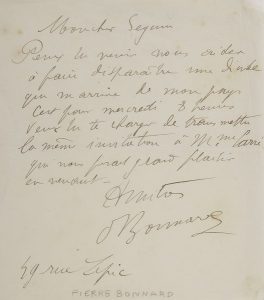 Mon cher Seguin
Peux tu venir nous aider
à faire disparaître une dinde
qui m'arrive de mon pays
C'est pour mercredi 8 heures
Veux tu te charger de transmettre
la même invitation à M. me
qui nous ferait grand plaisir
en venant.
Bonnard
49 rue Lepic
PIERRE BONNARD